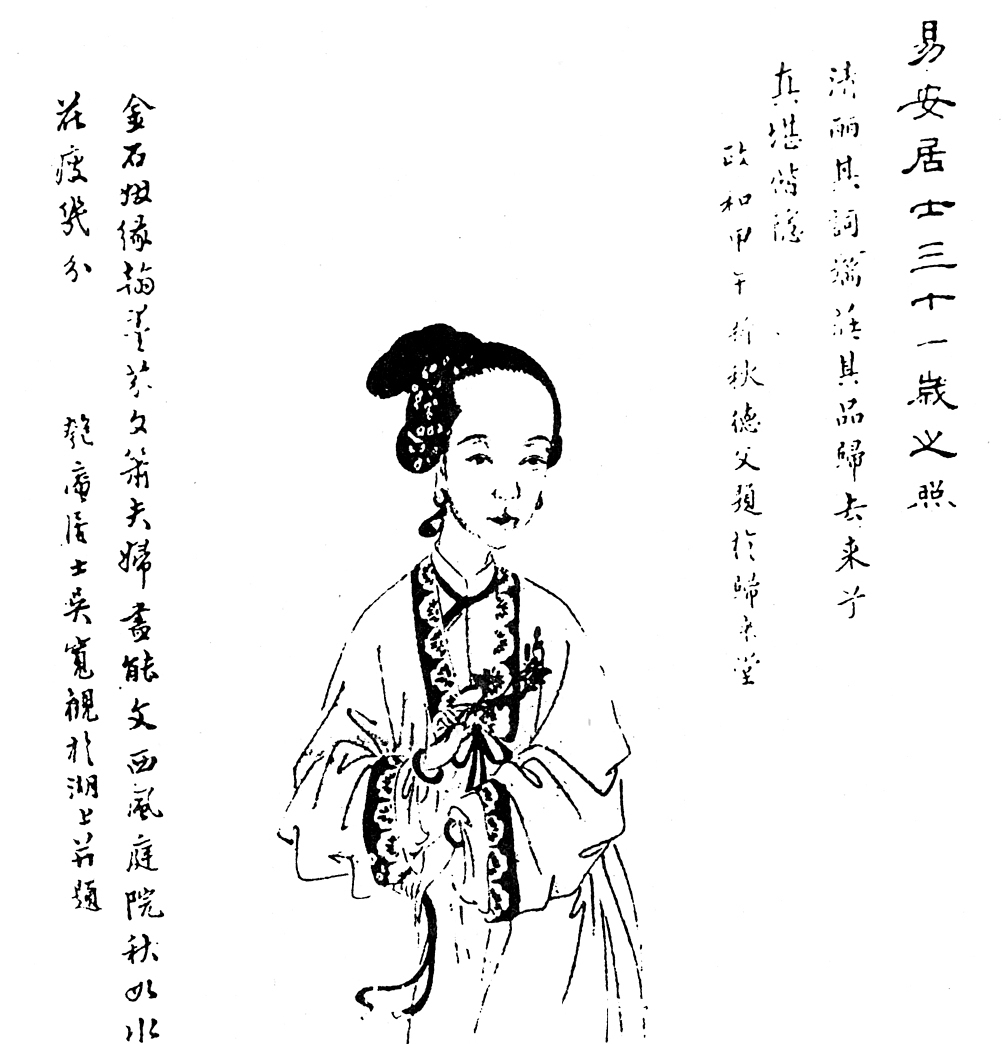 易安居士三十一歲之照
清麗其詞端莊其品歸去來兮
真堪偕隱
政和甲午新秋德父題於歸來堂
金石姻緣翰墨芬文簫夫婦盡能文西風庭院秋如水
花瘦幾分
匏庵居士吳寬觀於湖上并題